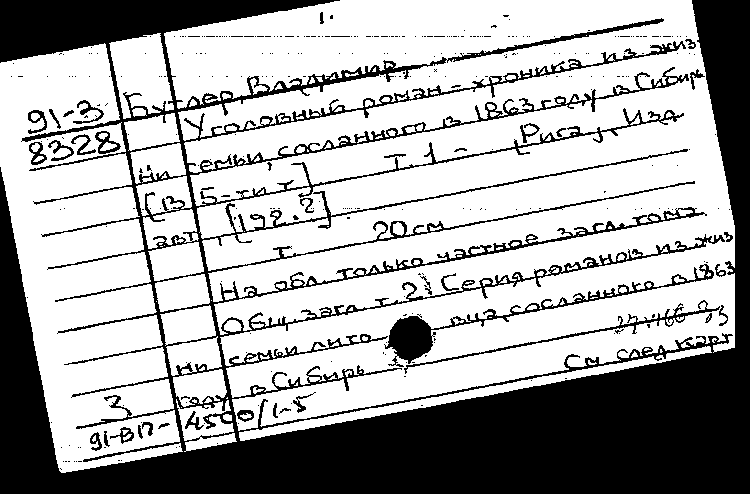 1.
91-3 Бутлер, Владимир,
8328 Уголовный роман-хроника из жиз-
ни семьи, сосланного в 1863 году в Сибирь
[в 5-ти т] т. 1 - [Рига], Изд
авт, [192.2]
т. 20 см
На обл. только частное загл. тома
Общ. загл т. 2: Серия романов из жиз
ни семьи лито вца, сосланного в 1863
году в Сибирь
См след карт
3
91-ВП- 4500/1-5